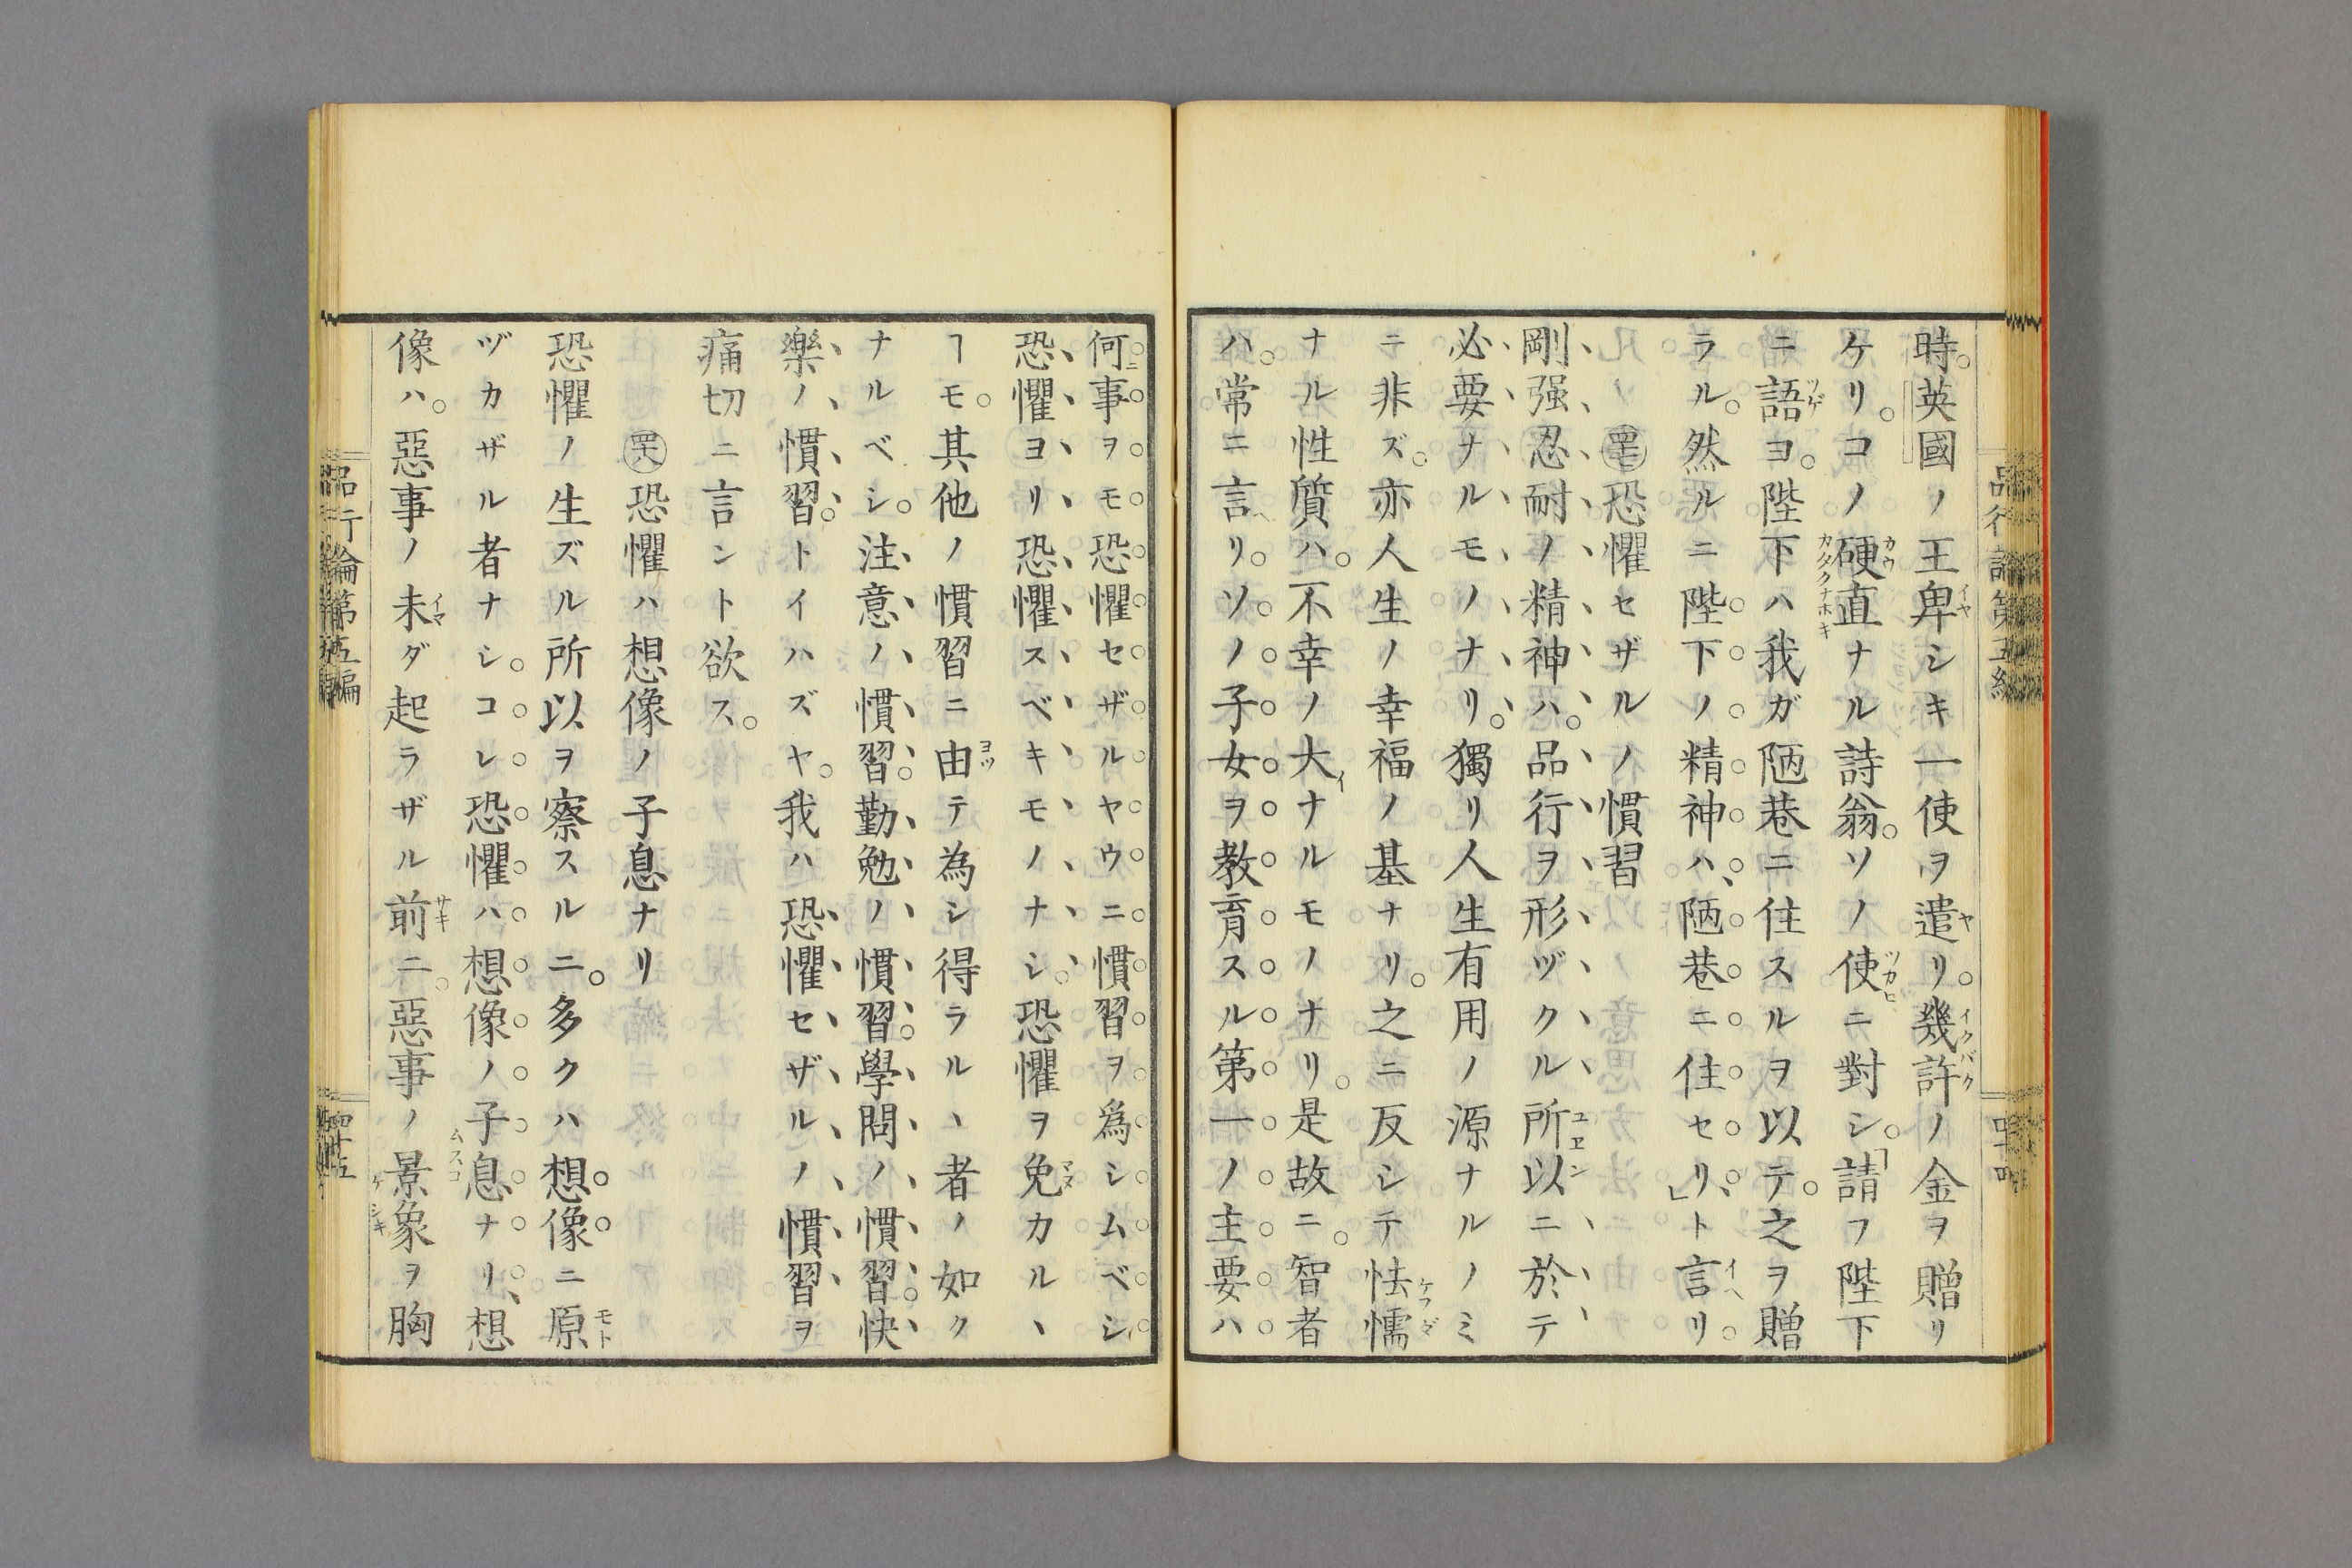 時。英國ノ王卑シキ一使ヲ遣リ。幾許ノ金ヲ贈リ
ケリ。コノ硬直ナル詩翁。ソノ使ニ對シ。「請フ陛下
ニ語ヨ。陛下ハ我ガ陋巷ニ住スルヲ以テ。之ヲ贈
ラル。然ルニ陛下ノ精神ハ、陋巷ニ住セリ、」ト言リ。
㊼恐懼セザルノ慣習
剛强忍耐ノ精神ハ。品行ヲ形ヅクル所以ニ於テ
必要ナルモノナリ。獨リ人生有用ノ源ナルノミ
ニ非ズ。亦人生ノ幸福ノ基ナリ。之ニ反シテ怯懦
ナル性質ハ。不幸ノ大ナルモノナリ。是故ニ。智者
ハ。常ニ言リ。ソノ子女ヲ教育スル第一ノ主要ハ
何事ヲモ恐懼セザルヤウニ慣習ヲ爲シムベシ
恐懼ヨリ恐懼スベキモノナシ。恐懼ヲ免カルヽ
ヿモ。其他ノ慣習ニ由テ為シ得ラルヽ者ノ如ク
ナルベシ。注意ノ慣習。勤勉ノ慣習。學問ノ慣習。快
樂ノ慣習。トイハズヤ。我ハ恐懼セザルノ慣習ヲ
痛切ニ言ント欲ス。
㊽恐懼ハ想像ノ子息ナリ
恐懼ノ生ズル所以ヲ察スルニ。多クハ想像ニ原
ヅカザル者ナシ。コレ恐懼ハ想像ノ子息ナリ、想
像ハ。惡事ノ未ダ起ラザル前ニ。惡事ノ景象ヲ胸
品行論第五編
四十五